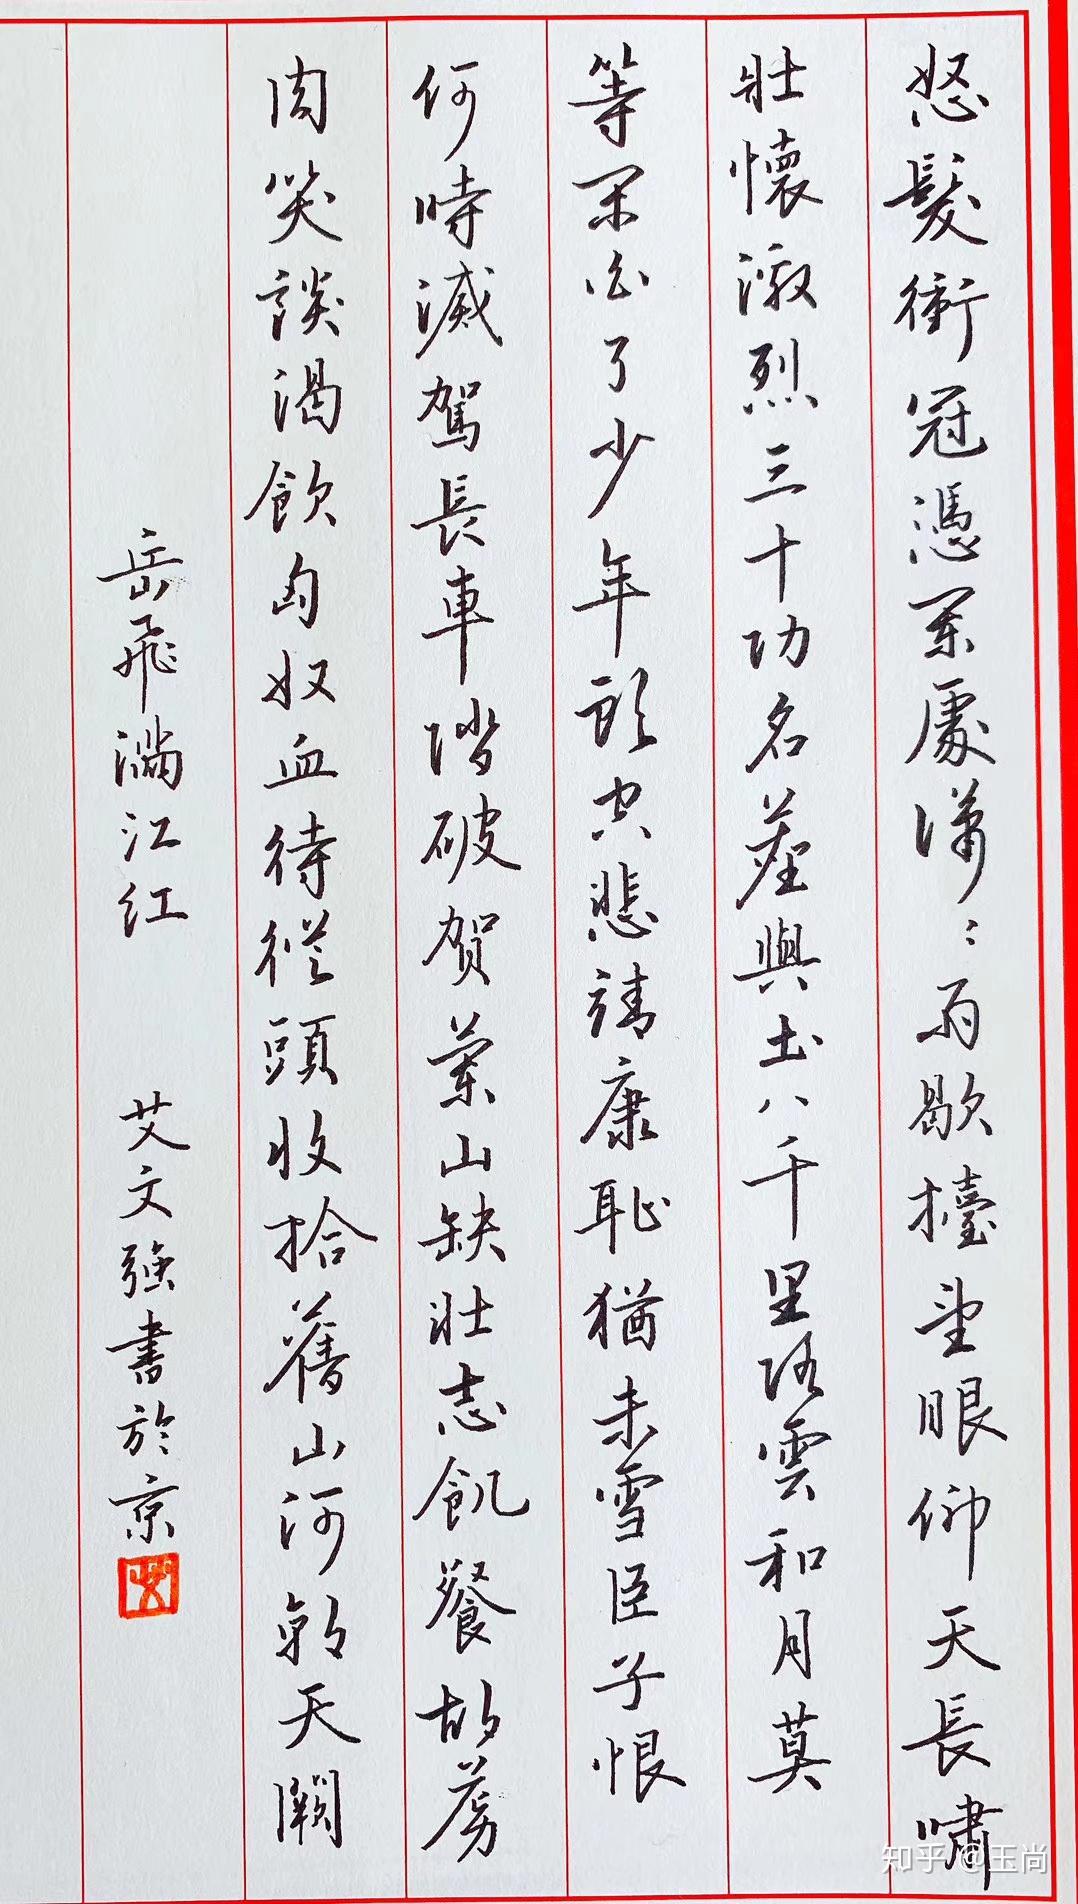 怒髮衝冠憑闌處潇〻雨歇擡望眼仰天長嘯
壯懷激烈三十功名塵與土八千里路雲和月莫
等閑白了少年頭空悲靖康恥猶未雪臣子恨
何時滅駕長車踏破贺蘭山缺壮志飢餐胡虜
肉笑談渴飲匈奴血待從頭收拾舊山河朝天闕
岳飛满江红 艾文强書於京
知乎 @玉尚